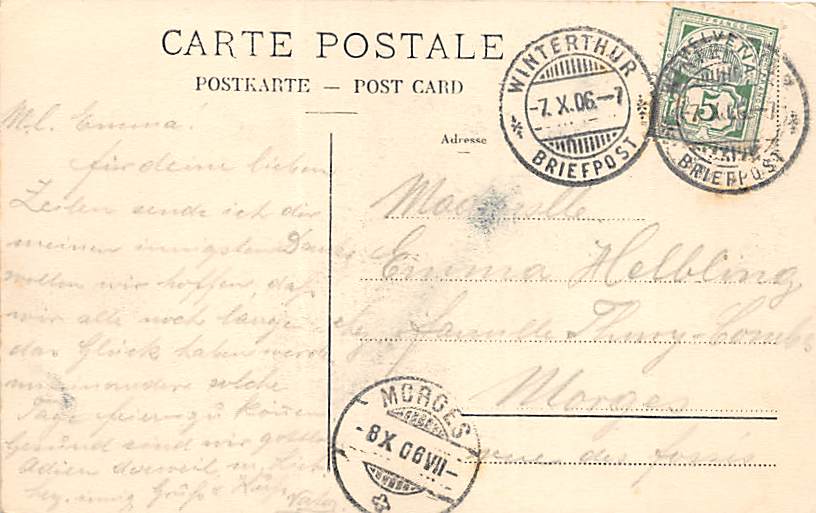 CARTE POSTALE
POSTKARTE — POST CARD
Adresse
WINTERTHUR
-7.X.06.-7
BRIEFPOST
HELVETIA
FRANCO
5
-7.X.06.-7
BRIEFPOST
M. l. Emma!
für deine lieben
Zeilen sende ich dir
meinen innigsten Dank
wollen wir hoffen, daß
wir alle noch lange
das Glück haben werden
miteinander solche
Tage feiern zu können
Gesund sind wir gottlob
Adieu derweil u.
herz. innig Gruß & Kuss
Vater
Mademoiselle
Emma Helbling
chez famille Thury-
Morges
rue des fossés
MORGES
-8.X.06 VII-